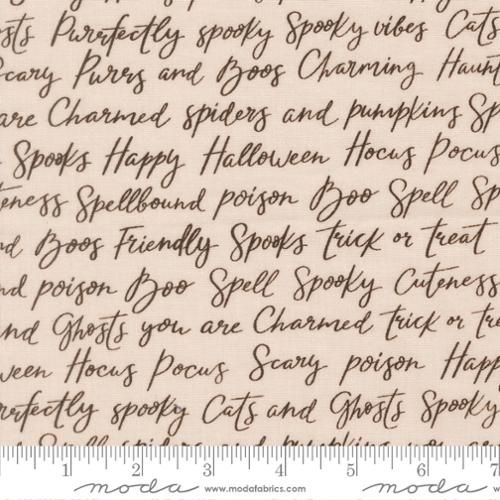 osts Purrfectly spooky Spooky vibes Cats
Scary Purrs and Boos Charming Haunt
are Charmed spiders and pumpkins Sp
Spooks Happy Halloween Hocus Pocus
teness Spellbound poison Boo Spell Sp
nd Boos Friendly Spooks trick or treat
nd poison Boo Spell Spooky Cuteness
and Ghosts you are Charmed trick or tre
ween Hocus Pocus Scary poison Happ
rrfectly spooky Cats and Ghosts Spooky
Spell spiders and pumpkins you are
1 2 3 4 5 6 7
moda www.modafabrics.com moda www.modafabrics.com moda w